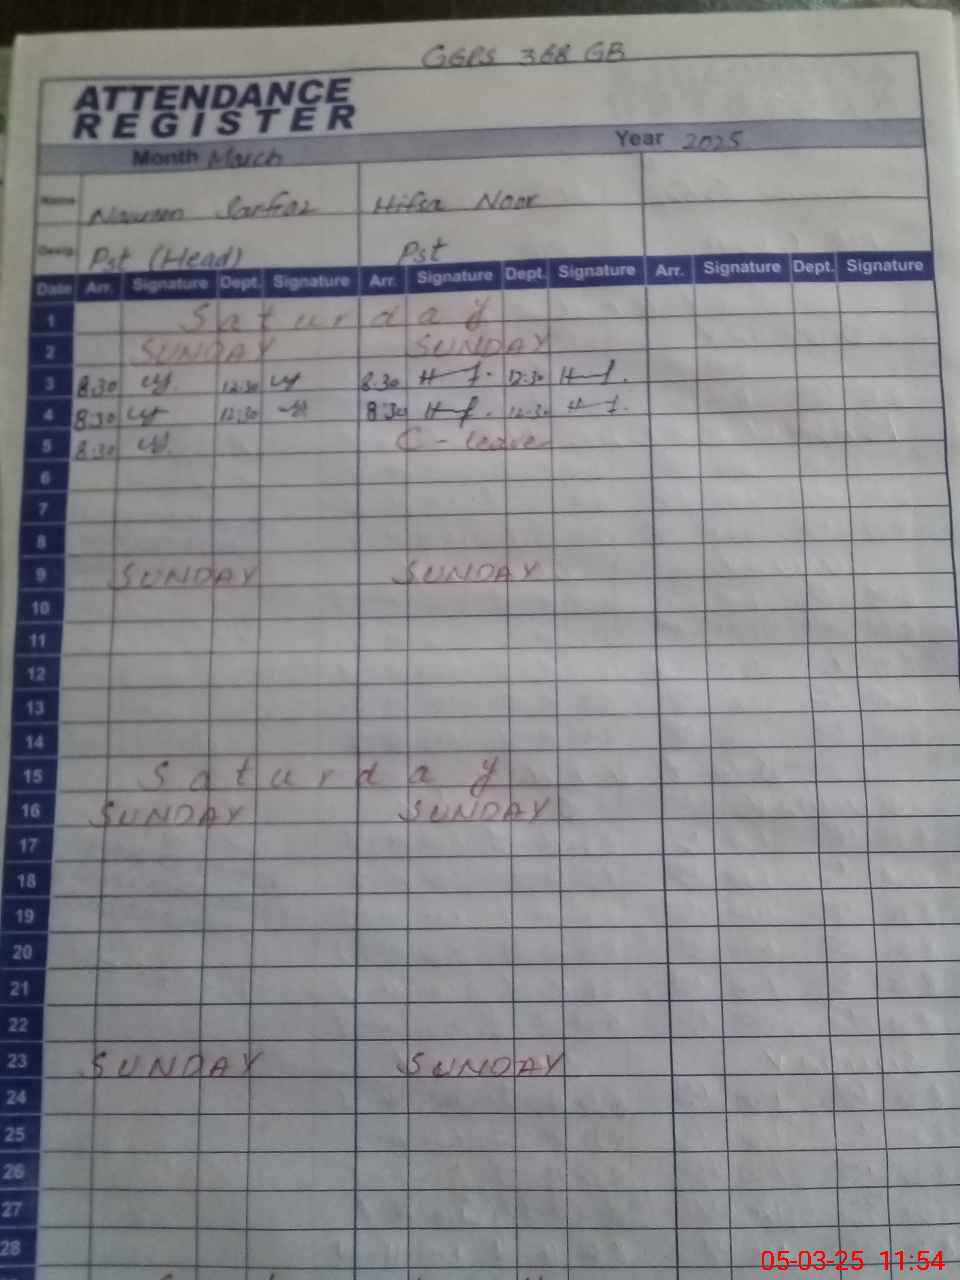 GGPS 368 GB
ATTENDANCE
REGISTER
Month March Year 2025
Name Nawreen Sarfraz Hifsa Noor
Desig. Pst (Head) Pst
Date Arr. Signature Dept. Signature Arr. Signature Dept. Signature Arr. Signature Dept. Signature
1 Saturday
2 SUNDAY SUNDAY
3 8:30 12:30 8:30 12:30
4 8:30 12:30 8:30 12:30
5 8:30 C-leave
6
7
8
9 SUNDAY SUNDAY
10
11
12
13
14
15 Saturday
16 SUNDAY SUNDAY
17
18
19
20
21
22
23 SUNDAY SUNDAY
24
25
26
27
28
05-03-25 11:54